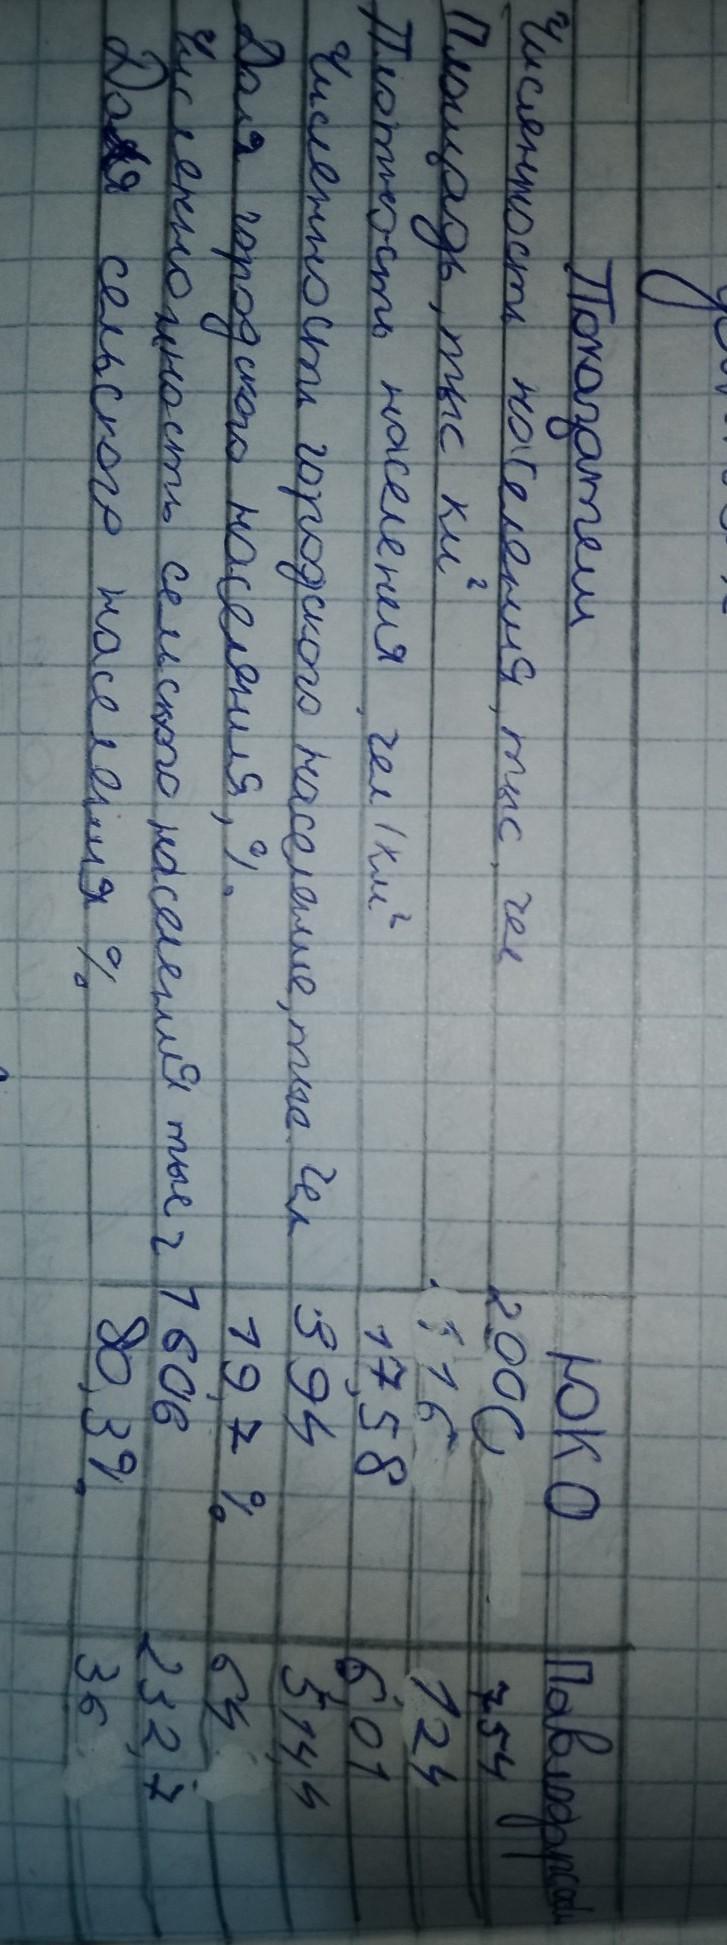 Показатели ЮКО Павлодрск
Численность населения, тыс, чел 2000 754
Площадь, тыс км² 116 124
Плотность населения, чел/км² 17,58 6,01
Численность городского население, тыс чел 394 514,4
Доля городского населения, % 19,7% 64
Численность сельского населения тыс 1606 232,7
Доля сельского населения % 80,3% 36